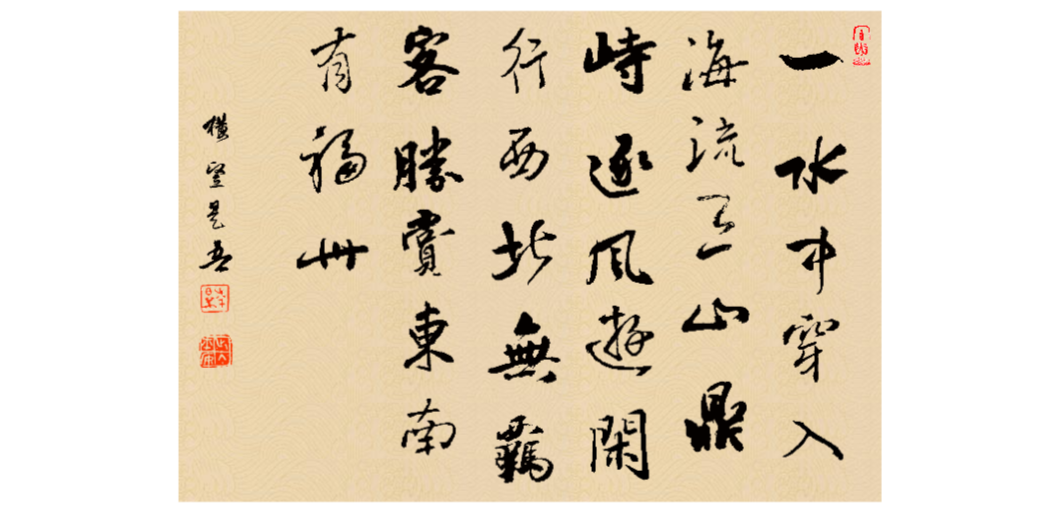 一水中穿入
海流三山鼎
峙逐風遊閑
行西北無羈
客勝賞東南
有福州
橫豎是吾